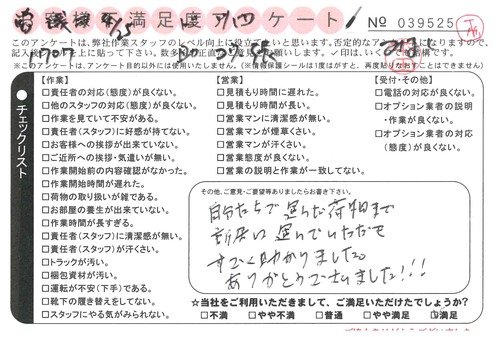 お客様満足度アンケート!
No 039525
このアンケートは、弊社作業スタッフのレベル向上に役立てたいと思います。否定的なアンケートになりますので、
※このアンケートは、アンケート目的以外には使用いたしません。(※情報保護シールは1度はがすと、再度貼りなおすことはできません)
チェックリスト
【作業】
□責任者の対応(態度)が良くない。
□他のスタッフの対応(態度)が良くない。
□作業を見ていて不安がある。
□責任者(スタッフ)に好感が持てない。
□お客様への挨拶が出来ていない。
□ご近所への挨拶・気遣いが無い。
□作業開始前の内容確認がなかった。
□作業開始時間が遅れた。
□荷物の取り扱いが雑である。
□お部屋の養生が出来ていない。
□作業時間が長すぎる。
□責任者(スタッフ)に清潔感が無い。
□責任者(スタッフ)が汗くさい。
□トラックが汚い。
□梱包資材が汚い。
□運転が不安(下手)である。
□靴下の履き替えをしてない。
□スタッフにやる気がみられない。
【営業】
□見積もり時間に遅れた。
□見積もり時間が長い。
□営業マンに清潔感が無い。
□営業マンが煙草くさい。
□営業マンが汗くさい。
□営業態度が良くない。
□営業の説明と作業が一致してない。
【受付・その他】
□電話の対応が良くない。
□オプション業者の説明
・作業が良くない。
□オプション業者の対応
(態度)が良くない。
その他、ご意見・ご要望等ありましたらお書き下さい。
自分たちで運んだ荷物まで
新居に運んでいただき
すごく助かりました。
ありがとうございました!!!
☆当社をご利用いただきまして、ご満足いただけたでしょうか?
□不満 □やや不満 □普通 □やや満足 □満足